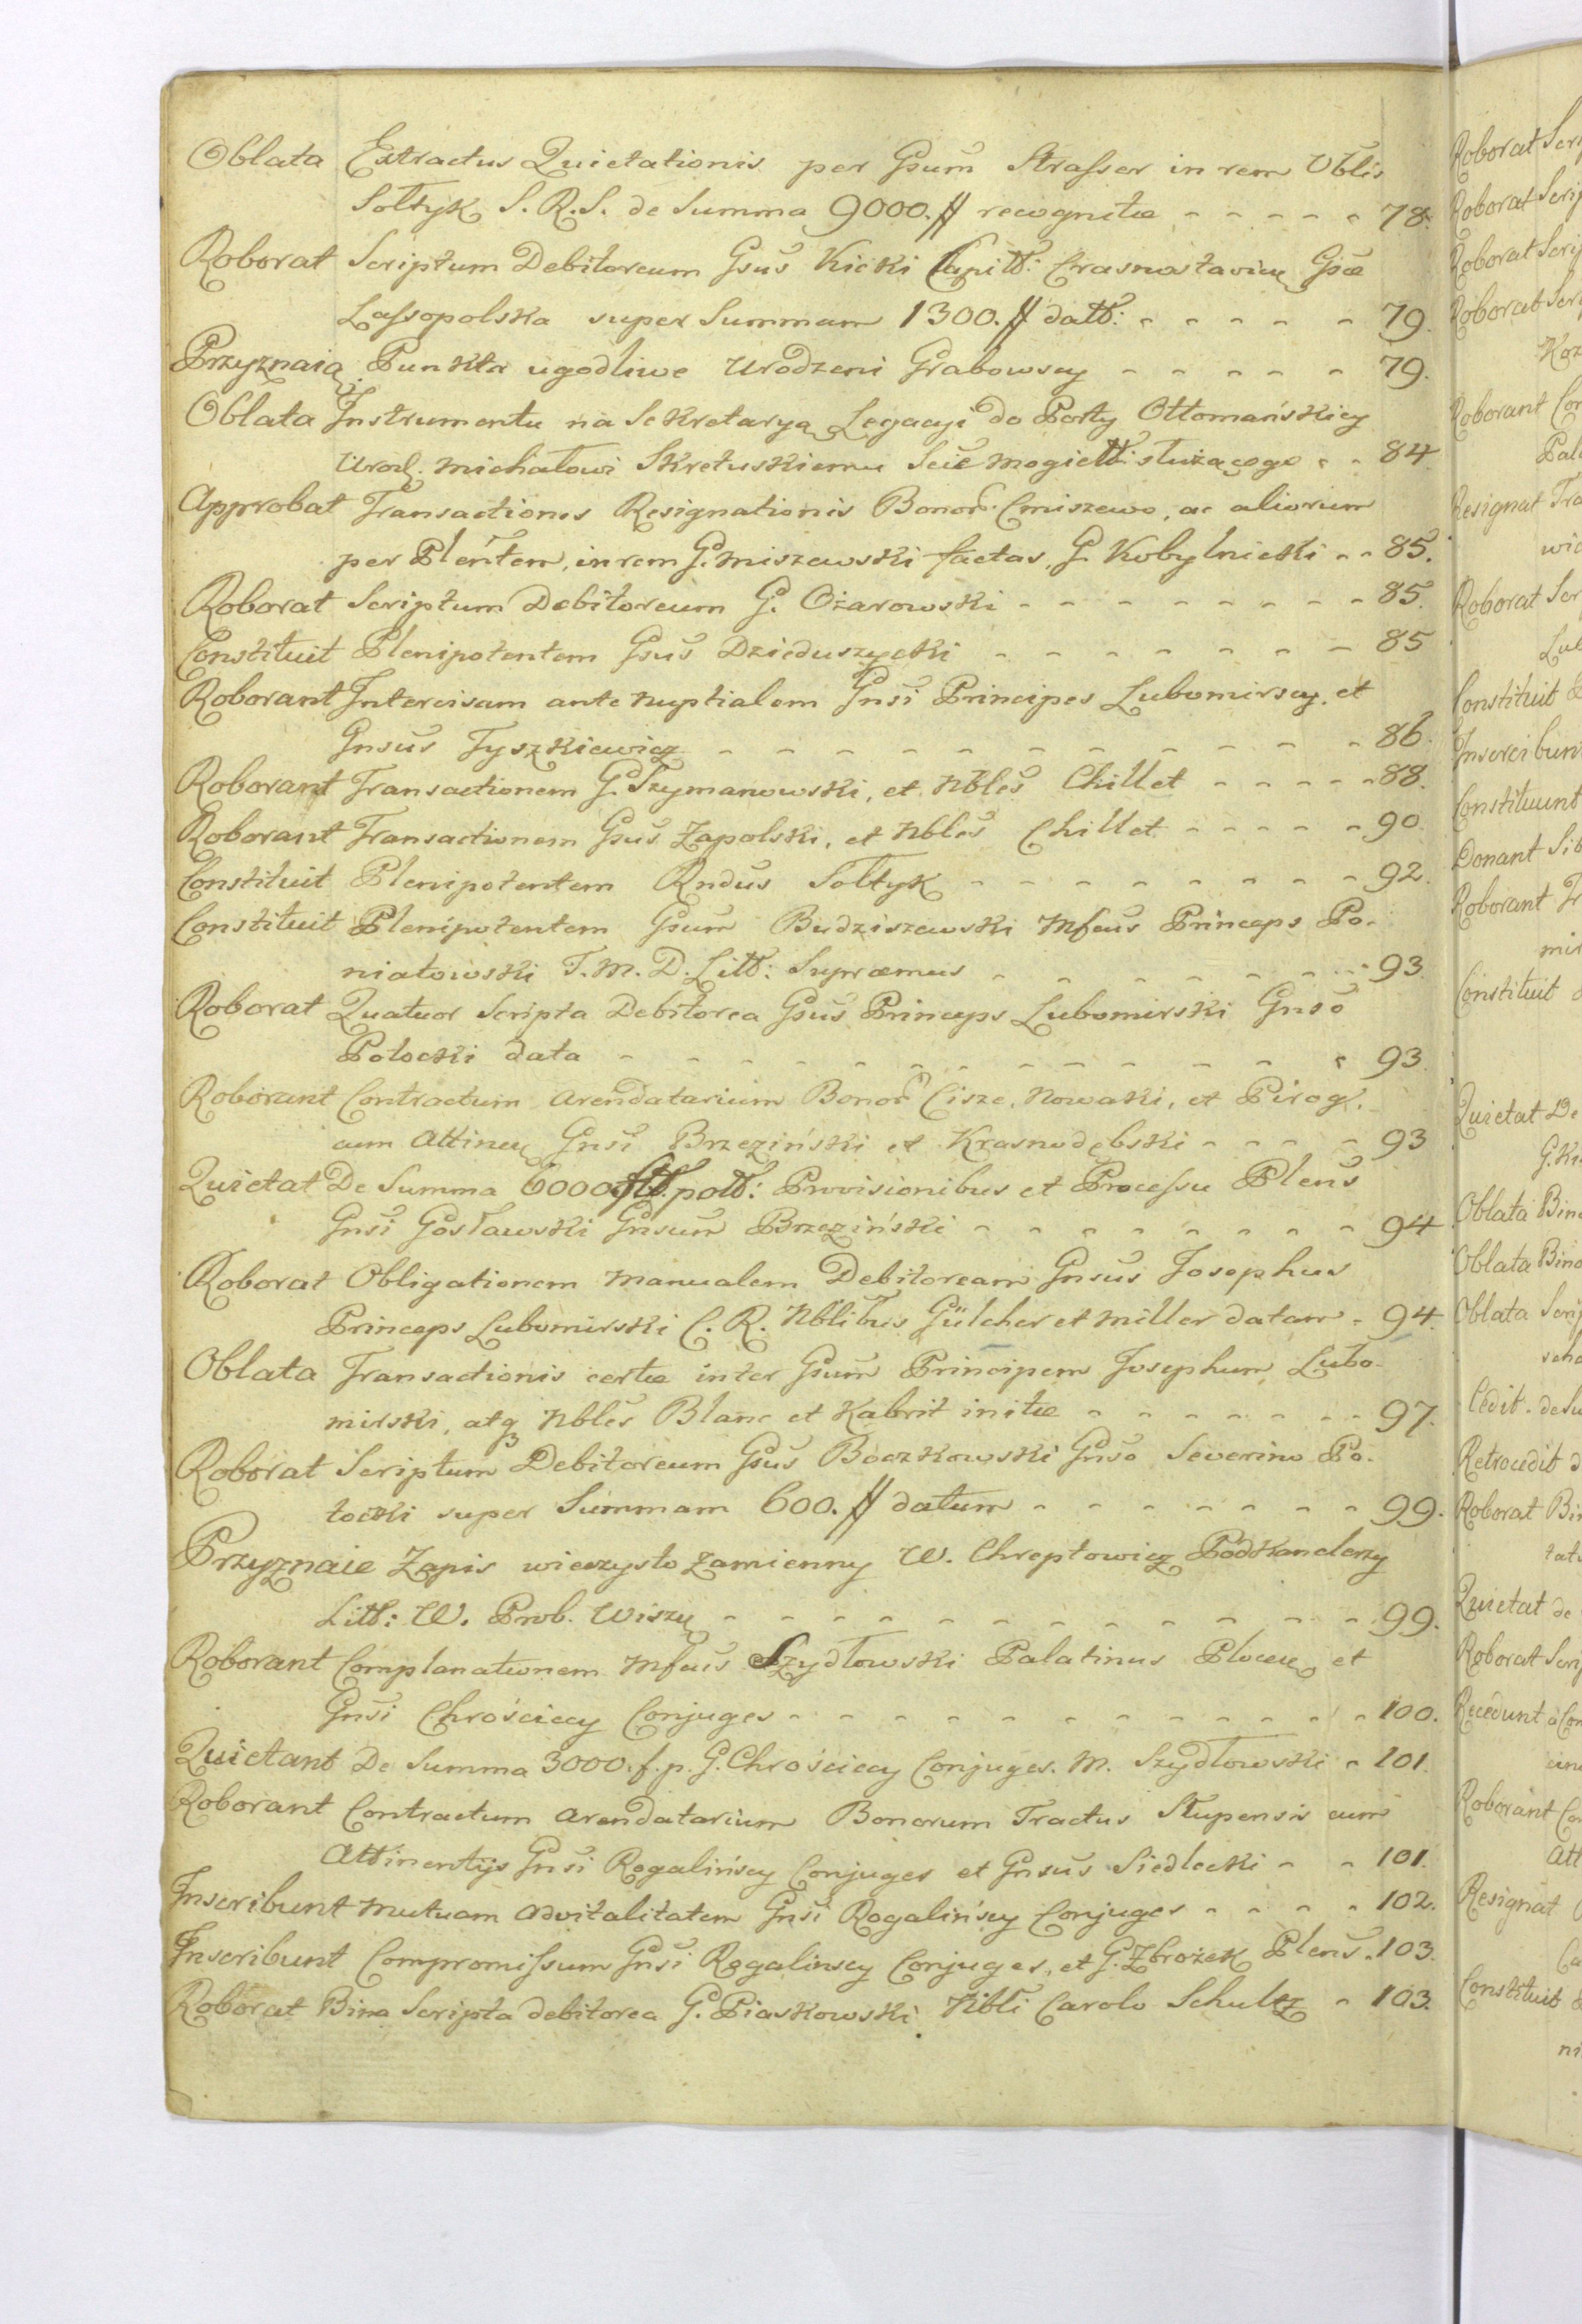 Oblata Extractus Quietationis per Gsum Strasser in rem Oblis
Sołtyk S. R. S. de Summa 9000. ## recognitæ - - - - - 78.
Roborat Scriptum Debitoreum Gsus Kicki Capitt: Crasnostavien Gsæ
Lassopolska super Summam 1300. ## datt: - - - - - 79.
Przyznaią Punkta ugodliwe Urodzeni Grabowscy - - - - - 79.
Oblata Instrumentu na Sekretaryą Legacyi do Porty Ottomańskiey
Urod. Michałowi Skretuskiemu Scie Mogielł: służącego - - 84.
Approbat Transactiones Resignationis Bonor. Cmiszewo, ac aliorum
per Plentem, in rem G. Miszewski factas, G. Kobylnicki - - 85.
Roborat Scriptum Debitoreum G. Ożarowski - - - - - - - - - 85.
Constituit Plenipotentem Gsus Dzieduszycki - - - - - - - 85
Roborant Intercisam ante nuptialem Gnsi Principes Lubomirscy, et
Gnsus Tyszkiewicz - - - - - - - - - - - - 86.
Roborant Transactionem G. Szymanowski, et Nbles Chillet - - - - - 88.
Roborant Transactionem Gsus Zapolski, et Nbles Chillet - - - - - 90.
Constituit Plenipotentem Rndus Sołtyk - - - - - - - - 92.
Constituit Plenipotentem Gsum Budziszewski Mfcus Princeps Po-
niatowski T. M. D. Litt: Supræmus - - - - - - - - 93.
Roborat Quatuor Scripta Debitorea Gsus Princeps Lubomirski Gnso
Potocki data - - - - - - - - - - - - - 93.
Roborant Contractum Arendatarium Bonor Cisze, Nowaki, et Pirog.
cum Attinen Gnsi Brzeziński et Krasnodębski - - - - 93
Quietat De Summa 6000 flł. poll: Provisionibus et Processu Plens
Gnsi Gosławski Gnsum Brzeziński - - - - - - - - 94
Roborat Obligationem Manualem Debitoream Gnsus Josephus
Princeps Lubomirski C. R. Nblibus Gülcher et Miller datam - 94.
Oblata Transactionis certæ inter Gsum Principem Josephum Lubo-
mirski, atq Nbles Blanc et Kabrit initæ - - - - - - - 97.
Roborat Scriptum Debitoreum Gsus Boczkowski Gnso Severino Po-
tocki super Summam 600. ## datum - - - - - - - 99.
Przyznaie Zapis wieczysto Zamienny W. Chreptowicz Podkanclerzy
Litt: W. Prob. Wiszn - - - - - - - - - - - - 99.
Roborant Complanationem Mfcus Szydłowski Palatinus Plocen et
Gnsi Chrościccy Conjuges - - - - - - - - - - - 100.
Quietant De Summa 3000. f. p. G. Chrościccy Conjuges. M. Szydłowski - 101.
Roborant Contractum Arendatarium Bonorum Tractus Słupensis cum
Attinentijs Gnsi Rogalińscy Conjuges et Gnsus Siedlecki - - 101.
Inscribunt Mutuam Advitalitatem Gnsi Rogalińscy Conjuges - - - - 102.
Inscribunt Compromissum Gnsi Rogalinscy Conjuges, et G. Zbrożek Plens. 103.
Roborat Bina Scripta debitorea G. Piaskowski Nbli Carolo Schultz - 103.
Roborat Scri
Roborat Scrip
Roborat Scrip
Roborat Scri
Koz
Roborant Con
Pala
Resignat Tra
wic
Roborat Scr
Lub
Constituit
Inscribun
Constituunt
Donant Sib
Roborant Tr
mir
Constituit
Quietat De
G. Ki
Oblata Bin
Oblata Bino
Oblata Scrip
Cedit de Su
Retrocedit d
Roborat Bin
Quietat de
Roborat Scrip
Recedunt à Con
Roborant Con
Att
Resignat
Constituit
ni